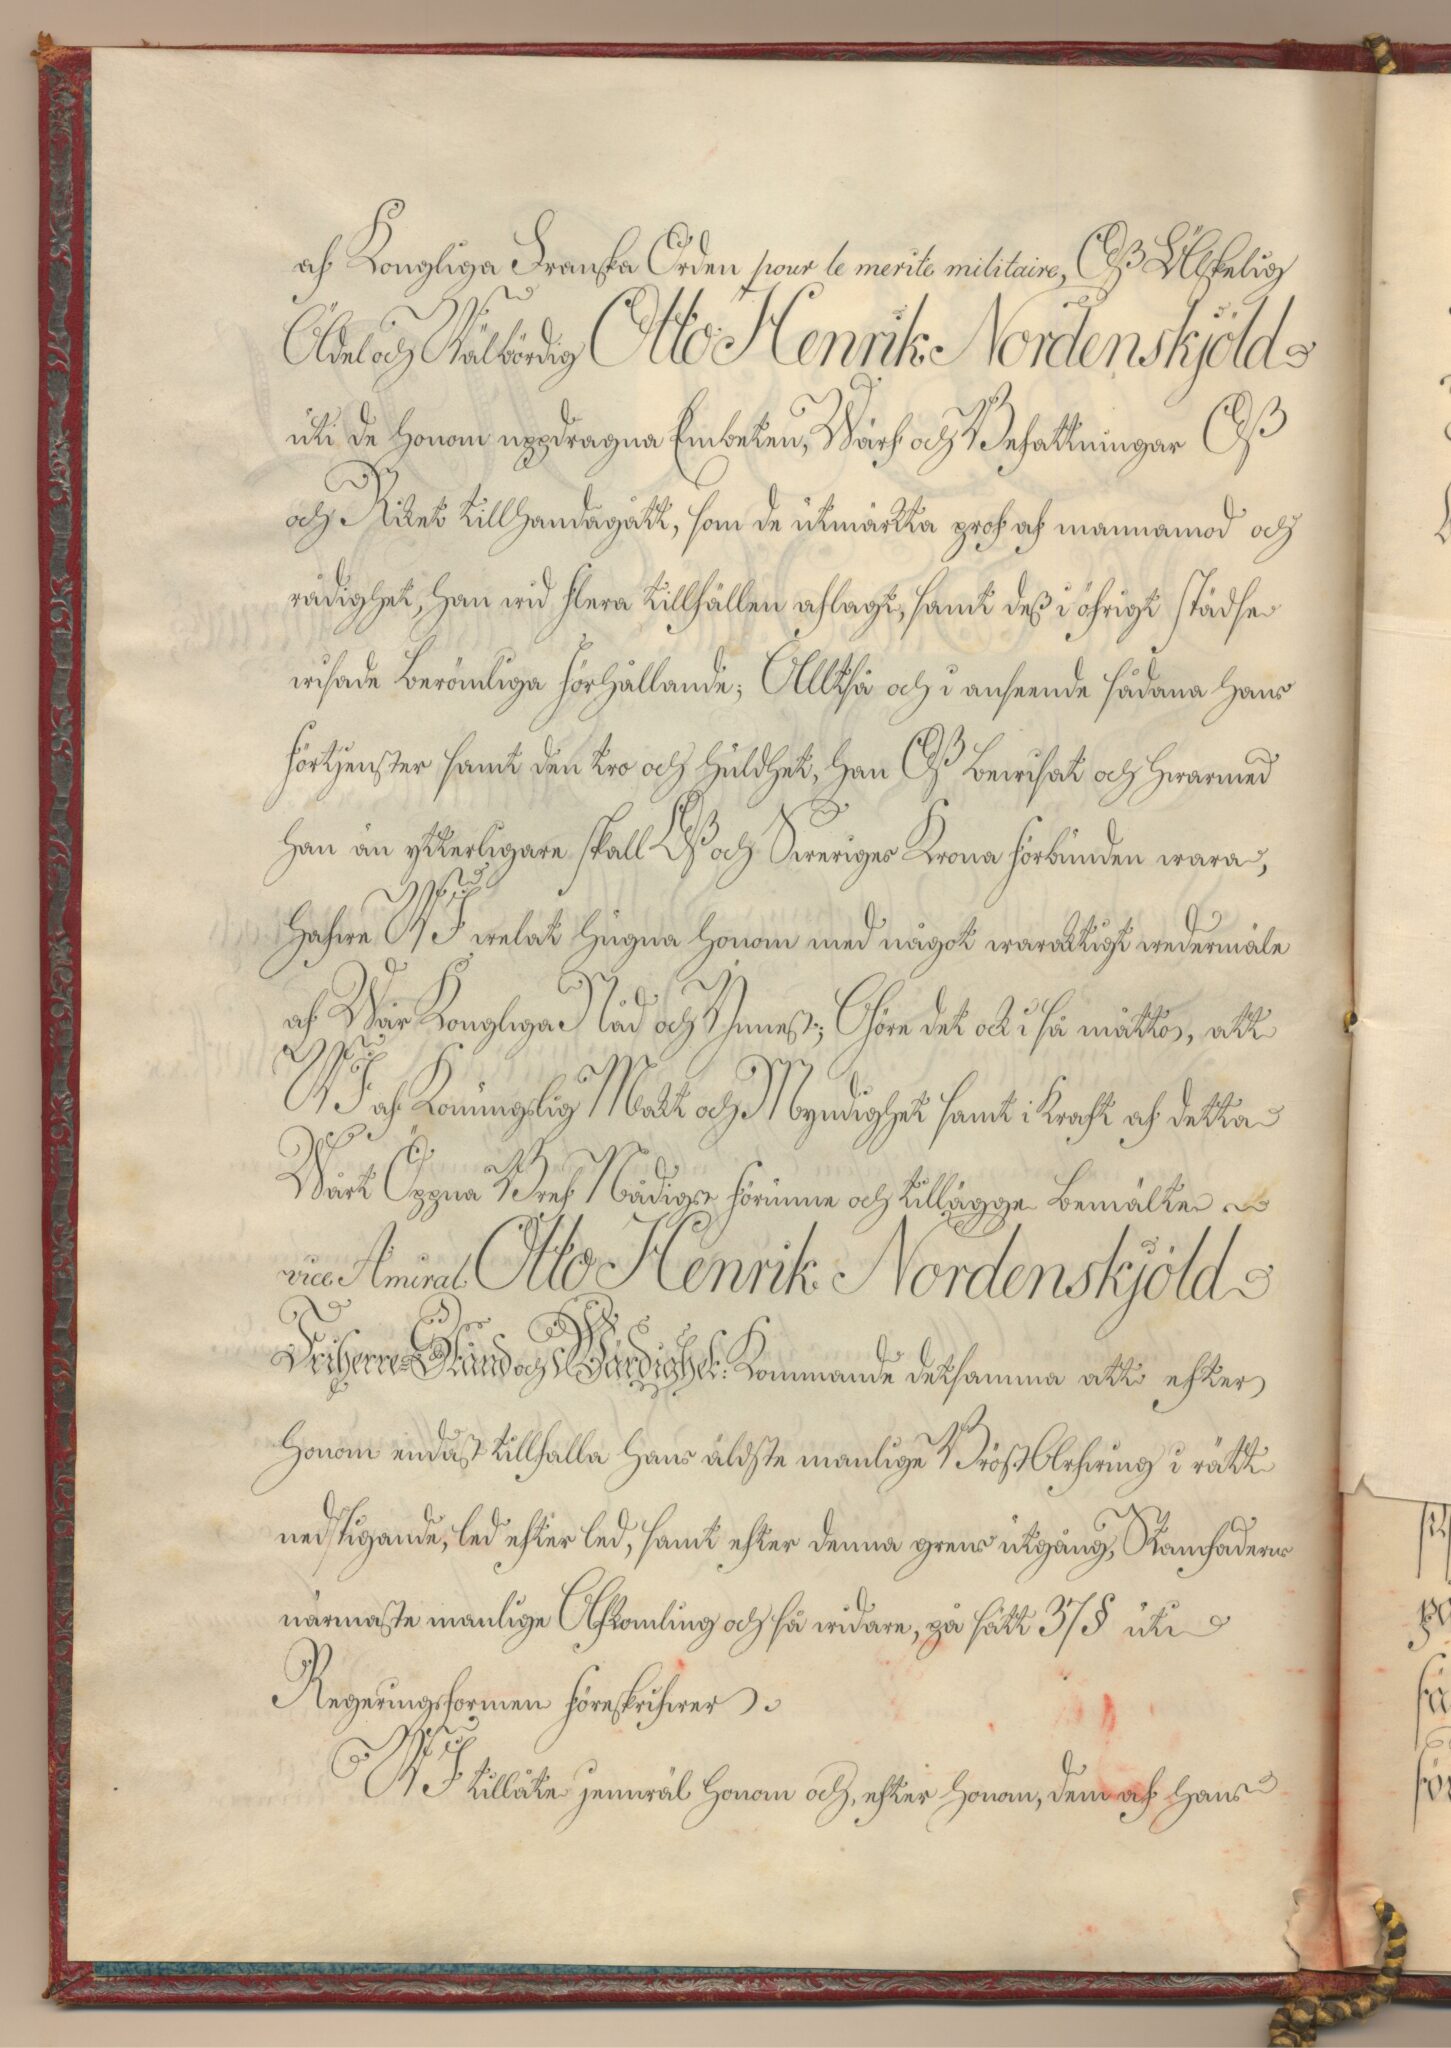 af Kongliga Franska Orden pour le merite militaire, Oß Älskelig
Ädel och Wälbördig Otto Henrik Nordenskjöld
uti de honom uppdragna Embeten, Wärf och Befattningar Oß
och Riket tillhandagått, som de utmärkta prof af mannamod och
rådighet, han wid flera tillfällen aflagt, samt deß i öfrigt städse
wisade berömliga förhållande; Alltså och i anseende sådana hans
förtjenster samt den tro och huldhet, han Oß bewisat och hwarmed
han än ytterligare skall Oß och Sweriges Krona förbunden wara,
hafwe WJ welat hugna honom med något waracktigt wedermäle
af Wår Kongliga Nåd och Ynnest; Göre det ock i så måtto, att
WJ af Konungslig Makt och Myndighet samt i kraft af detta
Wårt Öppna Bref Nådigst förunne och tillägge bemälte
vice Amiral Otto Henrik Nordenskjöld
Friherre-Stånd och Wärdighet: Kommande detsamma att efter
honom endast tillfalla hans äldste manlige Bröst Arfwing i rätt
nedstigande, led efter led, samt efter denna grens utgång, Stamfaderns
närmaste manlige Afkomling och så widare, på sätt 37 § uti
Regeringsformen föreskrifwer.
WJ tillåte jemwäl honom och, efter honom, dem af hans